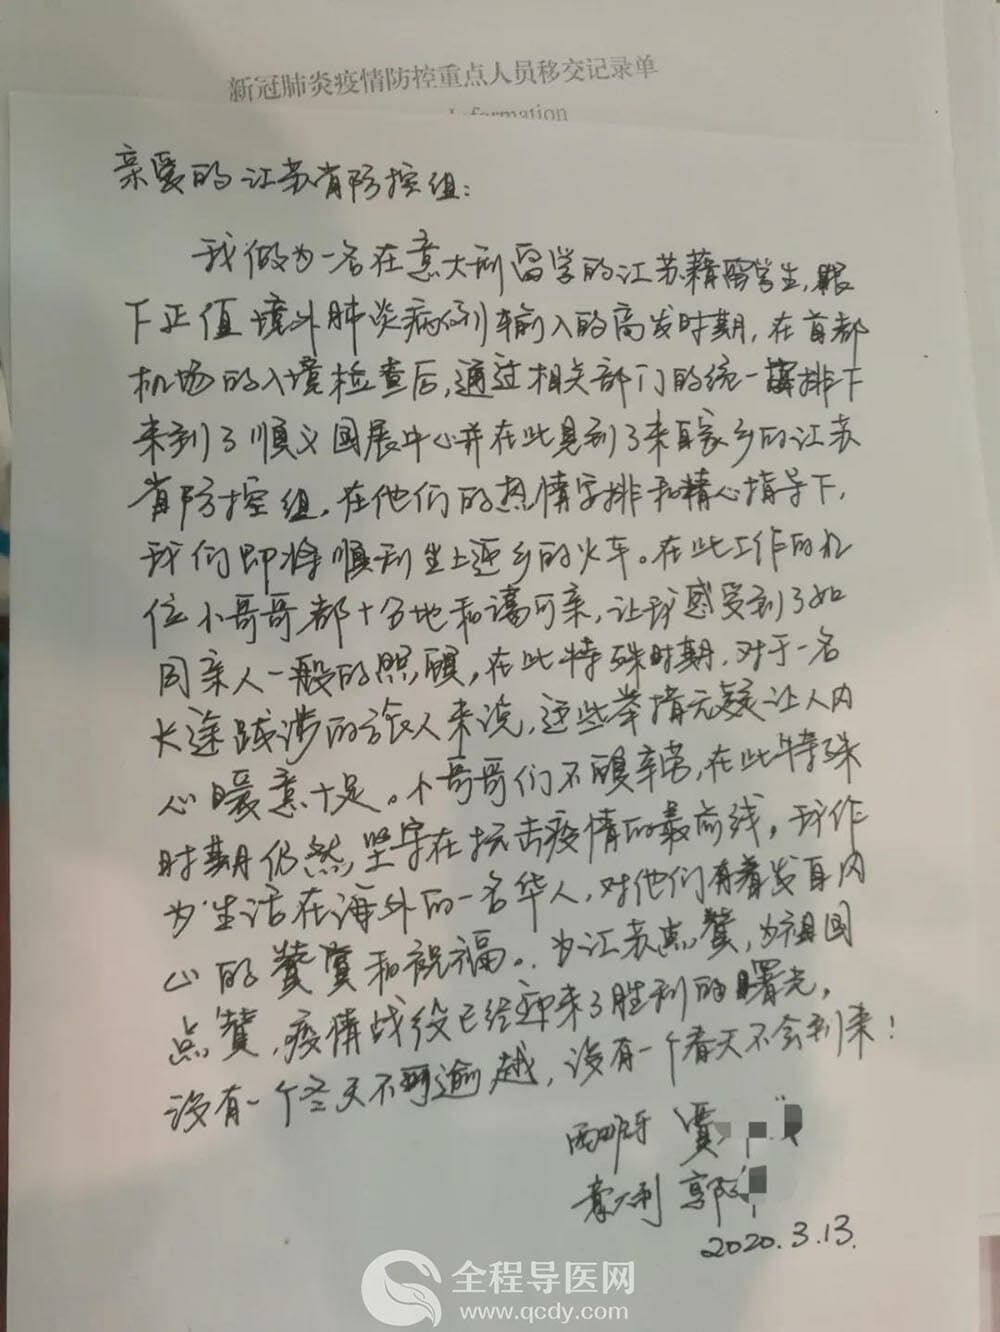 新冠肺炎疫情防控重点人员移交记录单
Information
亲爱的江苏省防控组:
我做为一名在意大利留学的江苏籍留学生,眼
下正值境外肺炎病例输入的高发时期,在首都
机场的入境检查后,通过相关部门的统一安排下
来到了顺义国展中心并在此见到了来自家乡的江苏
省防控组。在他们的热情安排和精心指导下,
我们即将顺利坐上返乡的火车。在此工作的几
位小哥哥都十分地和蔼可亲,让我感受到了如
同亲人一般的照顾,在此特殊时期,对于一名
长途跋涉的旅人来说,这些举措无疑让人内
心暖意十足。小哥哥们不畏辛劳,在此特殊
时期仍然坚守在抗击疫情的最前线,我作
为生活在海外的一名华人,对他们有着发自内
心的赞赏和祝福。为江苏点赞,为祖国
点赞,疫情战役已经迎来了胜利的曙光,
没有一个冬天不可逾越,没有一个春天不会到来!
西班牙 贾
意大利 郭
2020.3.13.
全程导医网
www.qcdy.com